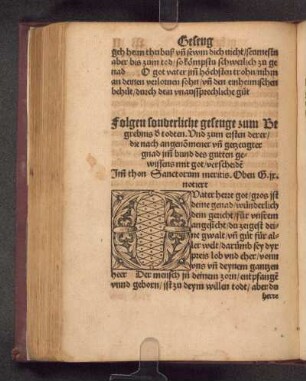 Geseng
geh heim thu buß vñ sewm dich nicht / seumestu
aber bis zum tod / so kömpstu schwerlich zu ge
nad O got vater jm höchsten trohn / nim
an deinen verlornen sohn / vñ den einheimschen
behüt / durch dein vnaussprechlicht güt
Folgen sonderlicht gesenge zum Be
grebnis d todten. Vnd zum ersten derer /
die nach angenomener vñ gezeugter
gnad jm bund des guten ge-
wissens mit got / verscheidẽ
Im thon Sanctorum meritis. Oben G. jr.
notiert
O Vater herre got / gros ist
deine gnad / wünderlich
dein gericht / für vnserm
angesicht / du zeigest dei-
ne gwalt / vñ güt für al-
ler welt / darümb sey dyr
preis lob vnd eher / vonn
vns vñ deynem ganzen
heer Der mensch jn deinem zorn / entpfangẽ
vnnd geborn / ist zu deym willen todt / aber du
herre